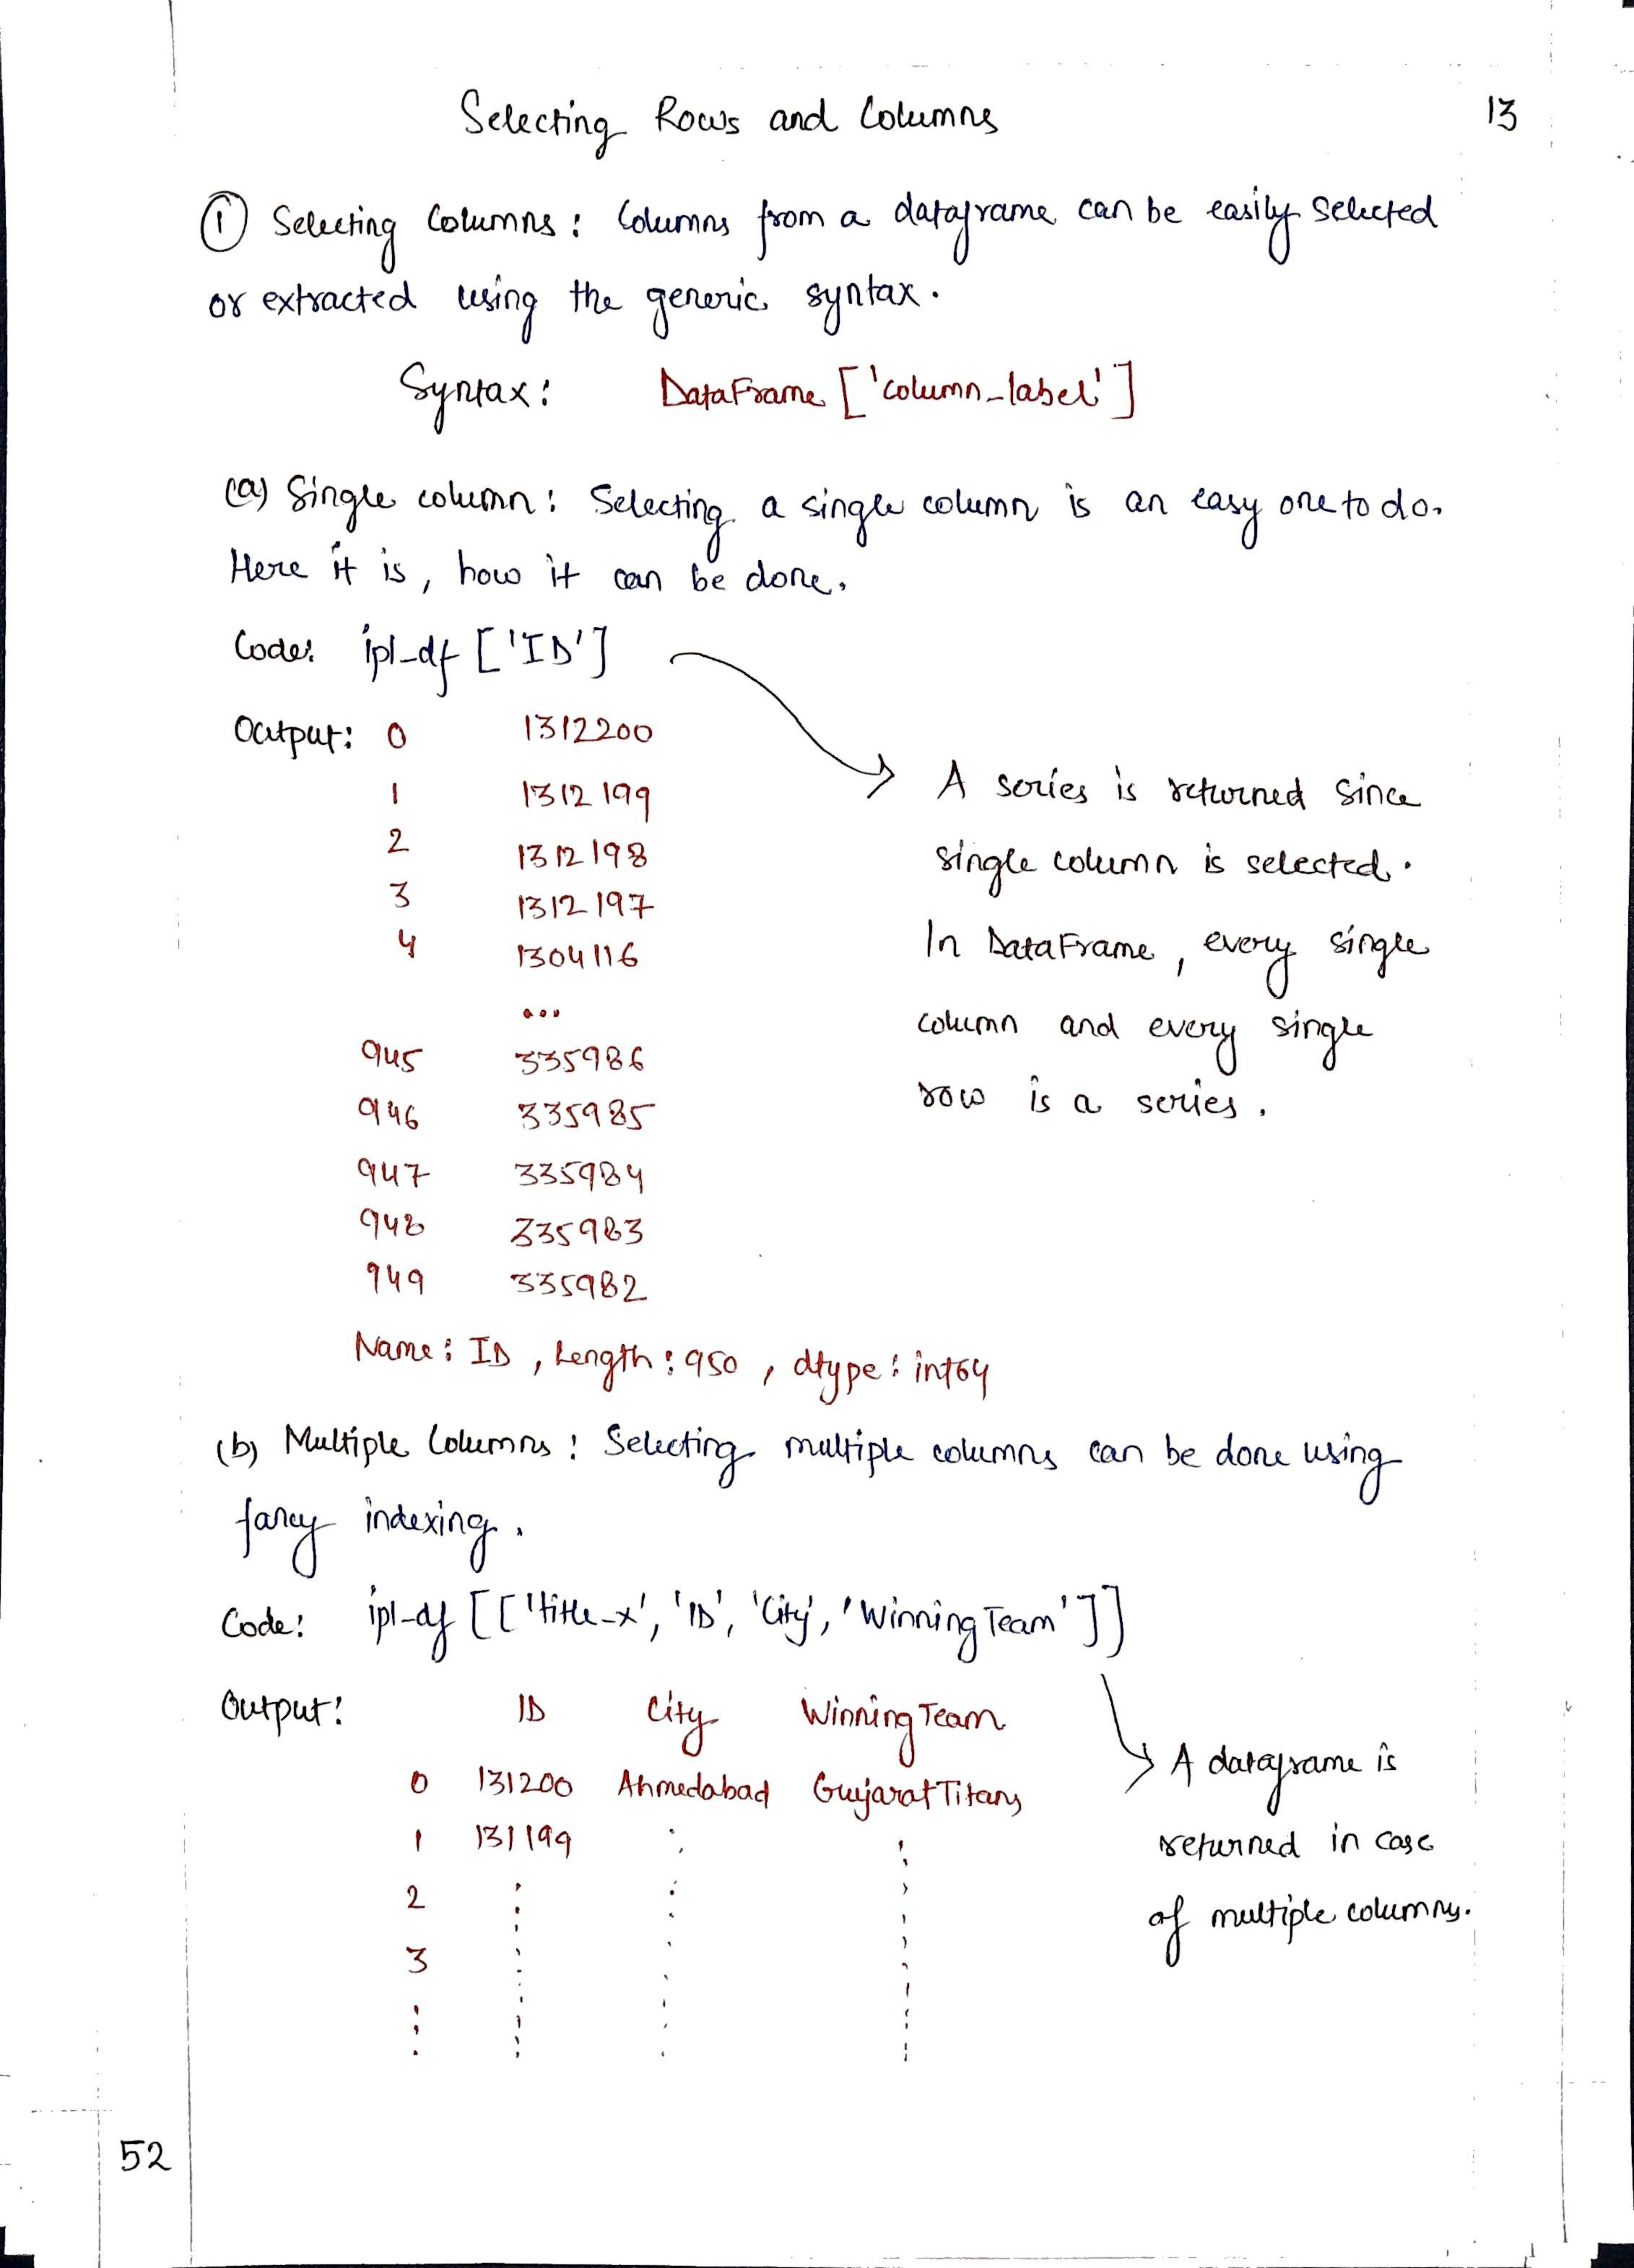 Selecting Rows and Columns
13
① Selecting Columns: Columns from a dataframe can be easily selected
or extracted using the generic syntax.
Syntax: DataFrame ['column_label']
(a) Single column: Selecting a single column is an easy one to do.
Here it is, how it can be done.
Code: ipl_df ['ID']
Output: 0 1312200
1 1312199
2 1312198
3 1312197
4 1304116
...
945 335986
946 335985
947 335984
948 335983
949 335982
Name: ID, Length: 950, dtype: int64
A series is returned since
single column is selected.
In DataFrame, every single
column and every single
row is a series.
(b) Multiple Columns: Selecting multiple columns can be done using
fancy indexing.
Code: ipl_df [['title_x', 'ID', 'City', 'WinningTeam']]
Output: ID City WinningTeam
0 131200 Ahmedabad Gujarat Titans
1 131199
2
3
A dataframe is
returned in case
of multiple columns.
52